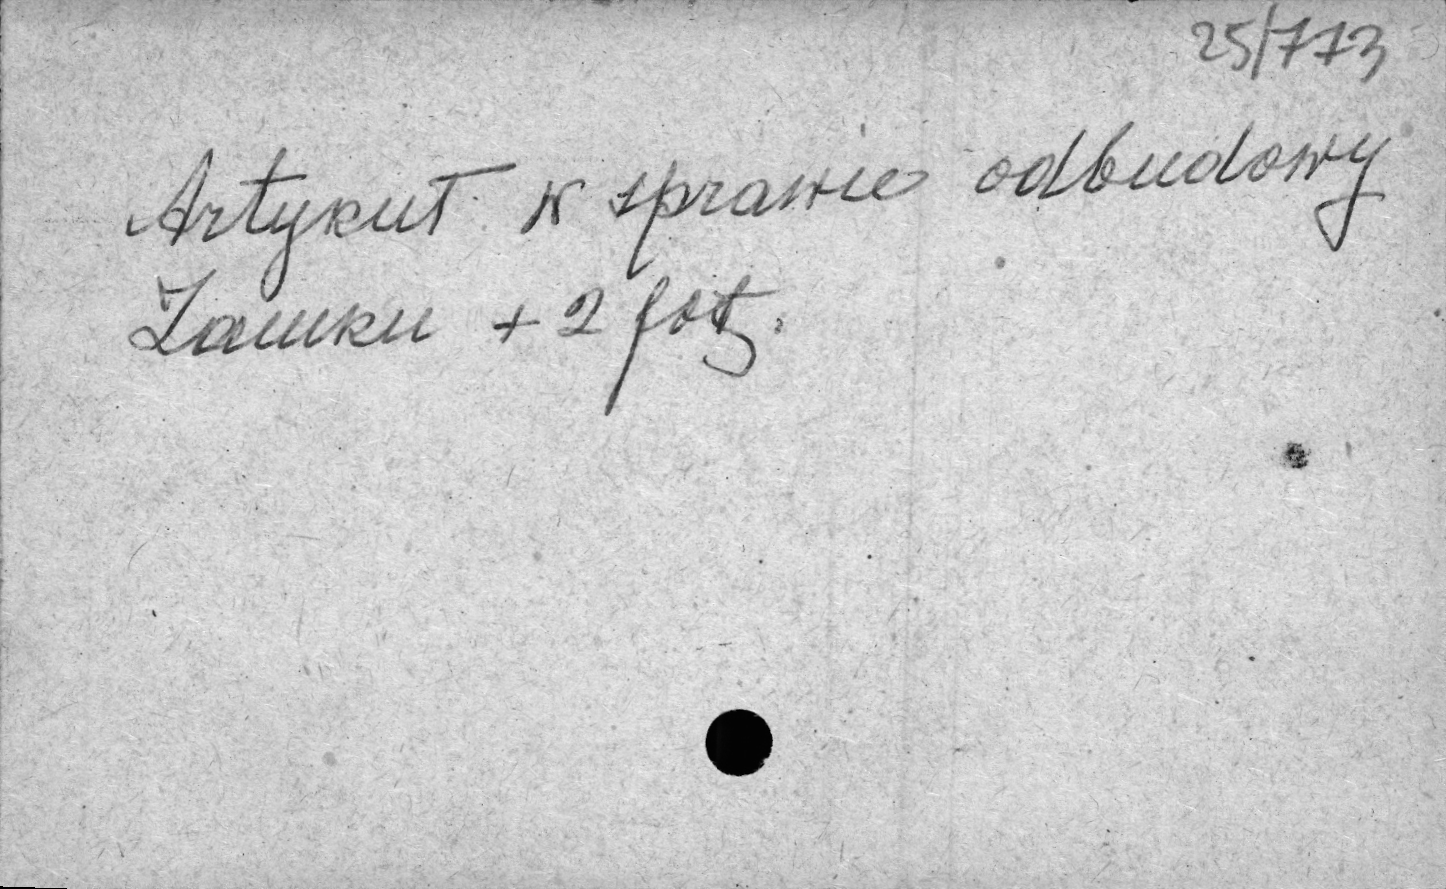 25/773
Artykuł w sprawie odbudowy
Zamku + 2 fot.